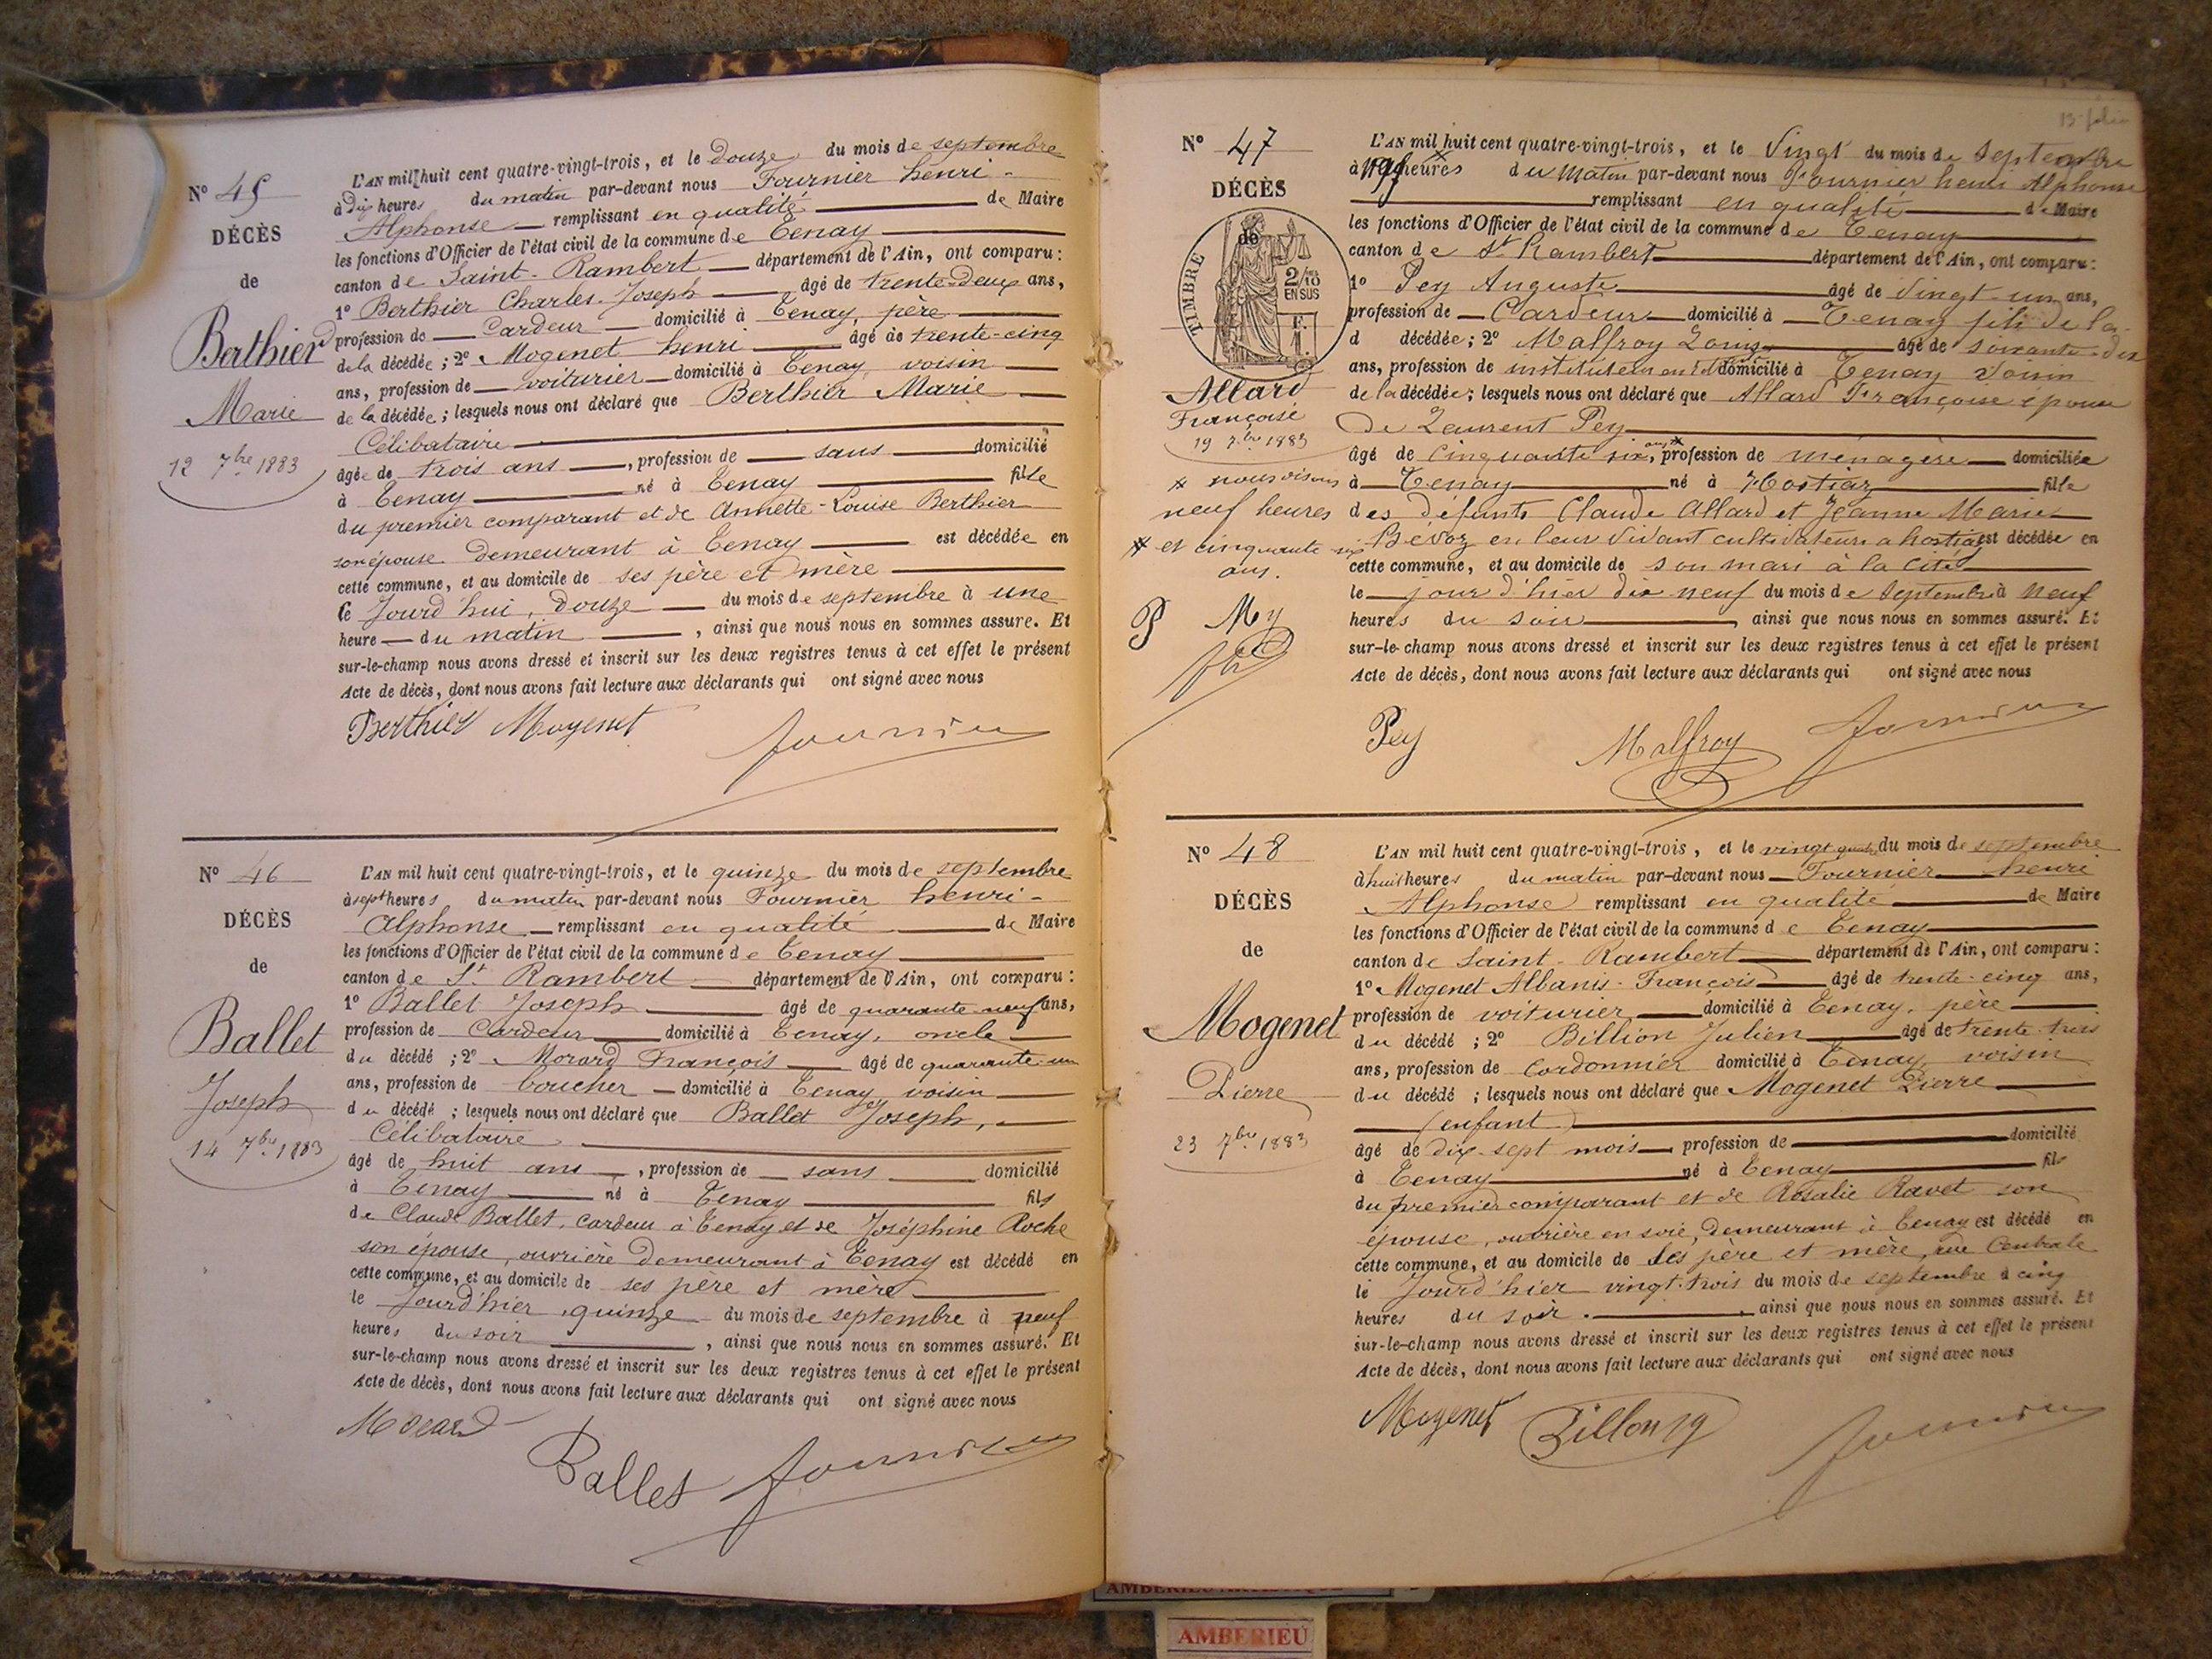 Nº 45
DÉCÈS
de
Berthier
Marie
12 7bre 1883
L'AN mil huit cent quatre-vingt-trois, et le douze du mois de septembre
à dix heures du matin par-devant nous Fournier henri-
Alphonse remplissant en qualité de Maire
les fonctions d'Officier de l'état civil de la commune de Tenay
canton de Saint-Rambert département de l'Ain, ont comparu:
1º Berthier Charles-Joseph âgé de trente-deux ans,
profession de Cardeur domicilié à Tenay, père
de la décédée; 2º Mogenet henri âgé de trente-cinq
ans, profession de voiturier domicilié à Tenay, voisin
de la décédée; lesquels nous ont déclaré que Berthier Marie
Célibataire
âgée de trois ans, profession de sans domicilié
à Tenay né à Tenay fille
du premier comparant et de Annette-Louise Berthier
son épouse demeurant à Tenay est décédée en
cette commune, et au domicile de ses père et mère
le jourd'hui, douze du mois de septembre à une
heure du matin, ainsi que nous nous en sommes assuré. Et
sur-le-champ nous avons dressé et inscrit sur les deux registres tenus à cet effet le présent
Acte de décès, dont nous avons fait lecture aux déclarants qui ont signé avec nous
Berthier Mogenet Fournier
Nº 46
DÉCÈS
de
Ballet
Joseph
14 7bre 1883
L'AN mil huit cent quatre-vingt-trois, et le quinze du mois de septembre
à sept heures du matin par-devant nous Fournier henri-
Alphonse remplissant en qualité de Maire
les fonctions d'Officier de l'état civil de la commune de Tenay
canton de St Rambert département de l'Ain, ont comparu:
1º Ballet Joseph âgé de quarante-neuf ans,
profession de Cardeur domicilié à Tenay, oncle
du décédé; 2º Morard François âgé de quarante-un
ans, profession de boucher domicilié à Tenay voisin
du décédé; lesquels nous ont déclaré que Ballet Joseph,
Célibataire
âgé de huit ans, profession de sans domicilié
à Tenay né à Tenay fils
de Claude Ballet, cardeur à Tenay et de Joséphine Roche
son épouse, ouvrière demeurant à Tenay est décédé en
cette commune, et au domicile de ses père et mère
le jourd'hier, quinze du mois de septembre à neuf
heures du soir, ainsi que nous nous en sommes assuré. Et
sur-le-champ nous avons dressé et inscrit sur les deux registres tenus à cet effet le présent
Acte de décès, dont nous avons fait lecture aux déclarants qui ont signé avec nous
Morard
Ballet Fournier
Nº 47
DÉCÈS
de
TIMBRE
2/10
EN SUS
Allard
Françoise
19 7bre 1883
neuf heures
et cinquante six
ans.
L'AN mil huit cent quatre-vingt-trois, et le Vingt du mois de Septembre
à heures du Matin par-devant nous Fournier henri Alphonse
remplissant en qualité de Maire
les fonctions d'Officier de l'état civil de la commune de Tenay
canton de St Rambert département de l'Ain, ont comparu:
1º Pey Auguste âgé de Vingt-un ans,
profession de Cardeur domicilié à Tenay fils de la
d décédée; 2º Malfroy Louis âgé de soixante-dix
ans, profession de instituteur domicilié à Tenay Voisin
de la décédée; lesquels nous ont déclaré que Allard Françoise épouse
De Laurent Pey
âgé de Cinquante six ans, profession de ménagère domiciliée
à Tenay né à Hostiaz fille
des défunts Claude Allard et Jeanne Marie
Bevoz en leur Vivant cultivateurs a hostiaz est décédée en
cette commune, et au domicile de son mari à la Cité
le jour d'hier dix neuf du mois de Septembre à Neuf
heures du soir, ainsi que nous nous en sommes assuré. Et
sur-le-champ nous avons dressé et inscrit sur les deux registres tenus à cet effet le présent
Acte de décès, dont nous avons fait lecture aux déclarants qui ont signé avec nous
Pey Malfroy Fournier
Nº 48
DÉCÈS
de
Mogenet
Pierre
23 7bre 1883
L'AN mil huit cent quatre-vingt-trois, et le vingt quatre du mois de septembre
à huit heures du matin par-devant nous Fournier henri
Alphonse remplissant en qualité de Maire
les fonctions d'Officier de l'état civil de la commune de Tenay
canton de Saint-Rambert département de l'Ain, ont comparu:
1º Mogenet Albanis-François âgé de trente-cinq ans,
profession de voiturier domicilié à Tenay, père
du décédé; 2º Billion Julien âgé de trente-trois
ans, profession de Cordonnier domicilié à Tenay voisin
du décédé; lesquels nous ont déclaré que Mogenet Pierre
(enfant)
âgé de dix-sept mois, profession de domicilié
à Tenay né à Tenay fils
du premier comparant et de Rosalie Ravet son
épouse, ouvrière en soie, demeurant à Tenay est décédé en
cette commune, et au domicile de ses père et mère, rue Centrale
le jourd'hier vingt-trois du mois de septembre à cinq
heures du soir, ainsi que nous nous en sommes assuré. Et
sur-le-champ nous avons dressé et inscrit sur les deux registres tenus à cet effet le présent
Acte de décès, dont nous avons fait lecture aux déclarants qui ont signé avec nous
Mogenet Fournier
AMBERIEU